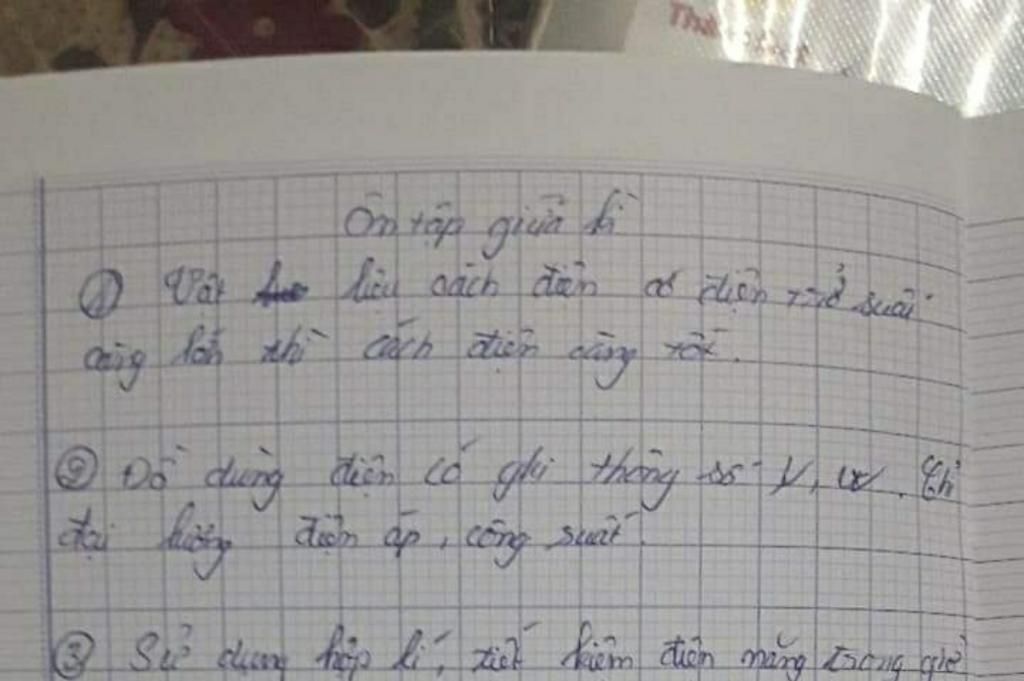 Ôn tập giữa kì
① Vật liệu cách điện có điện trở suất
càng lớn thì cách điện càng tốt.
② Đồ dùng điện có ghi thông số V, W. Chỉ
đại lượng điện áp, công suất.
③ Sử dụng hợp lí, tiết kiệm điện năng trong giờ